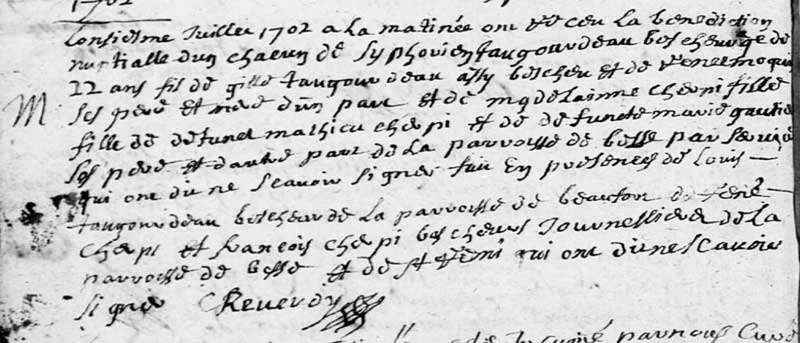 1702
Lonsiesme Juillet 1702 a la matinée ont esté ceu la benediction
nuptialle d'un chacun de syphorien taugourdeau bescheur agé de
22 ans fil de gille taugourdeau aussy bescheu et de renee moqui
M
ses pere et mere d'un part et de magdelainne cherpi fille
fille de defunct mathieu cherpi et de defuncte marie gautie
ses pere et d'autre part de la parroisse de besse par servise
qui ont di ne scavoir signer fait En presences de Louis
taugourdeau bescheur de la parroisse de beauton de rené
cherpi et francois cherpi bescheurs Journessiers de la
parroisse de besse et de st remi qui ont di ne scavoir
signer CReverdy
parnous Curé